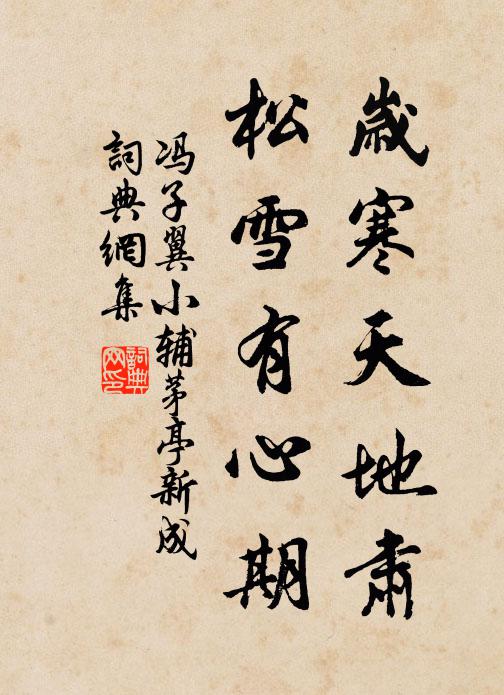 歲寒天地肅
松雪有心期
冯子翼小辅茅亭新成
詞典網集
詞典网印